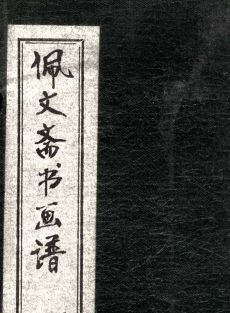 佩文斋书画谱